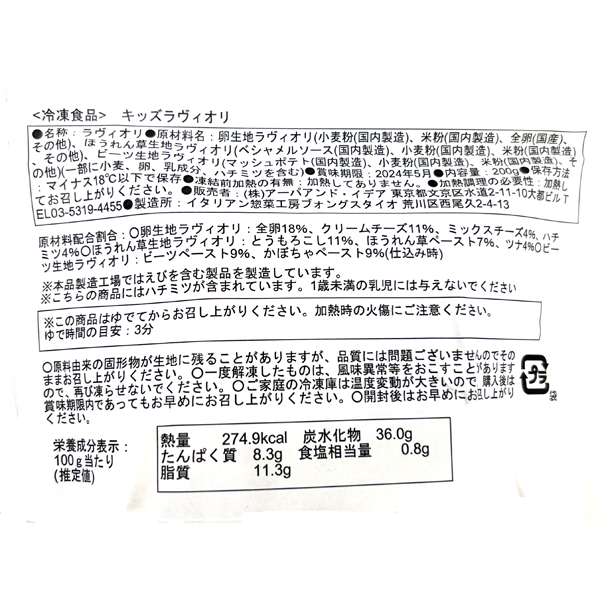 <冷凍食品>　キッズラヴィオリ
●名称：ラヴィオリ●原材料名：卵生地ラヴィオリ(小麦粉(国内製造)、米粉(国内製造)、全卵(国産)、
その他)、ほうれん草生地ラヴィオリ(ベシャメルソース(国内製造)、小麦粉(国内製造)、米粉(国内製造)
、その他)、ビーツ生地ラヴィオリ(マッシュポテト(国内製造)、小麦粉(国内製造)、米粉(国内製造)、そ
の他)(一部に小麦、卵、乳成分、ハチミツを含む)●賞味期限：2024年5月●内容量：200g●保存方法
：マイナス18℃以下で保存●凍結前加熱の有無：加熱してありません。●加熱調理の必要性：加熱し
てお召し上がりください。●販売者：(株)アーバアンド・イデア 東京都文京区水道2-11-10大都ビル T
EL03-5319-4455●製造所：イタリアン惣菜工房フォングスタイオ 荒川区西尾久2-4-13
原材料配合割合：〇卵生地ラヴィオリ：全卵18%、クリームチーズ11%、ミックスチーズ4%、ハチ
ミツ4%〇ほうれん草生地ラヴィオリ：とうもろこし11%、ほうれん草ペースト7%、ツナ4%〇ビー
ツ生地ラヴィオリ：ビーツペースト9%、かぼちゃペースト9%(仕込み時)
※本品製造工場ではえびを含む製品を製造しています。
※こちらの商品にはハチミツが含まれています。1歳未満の乳児には与えないでください
※この商品はゆでてからお召し上がりください。加熱時の火傷にご注意ください。
ゆで時間の目安：3分
〇原料由来の固形物が生地に残ることがありますが、品質には問題ございませんのでその
ままお召し上がりください。〇一度解凍したものは、風味異常等をおこすことがあります
ので、再び凍らせないでください。〇ご家庭の冷凍庫は温度変動が大きいので、購入後は
賞味期限内であってもお早めにお召し上がりください。〇開封後はお早めにお召し上がり
プラ
袋
栄養成分表示：
100g当たり
(推定値)
熱量　274.9kcal　炭水化物　36.0g
たんぱく質　8.3g　食塩相当量　0.8g
脂質　11.3g